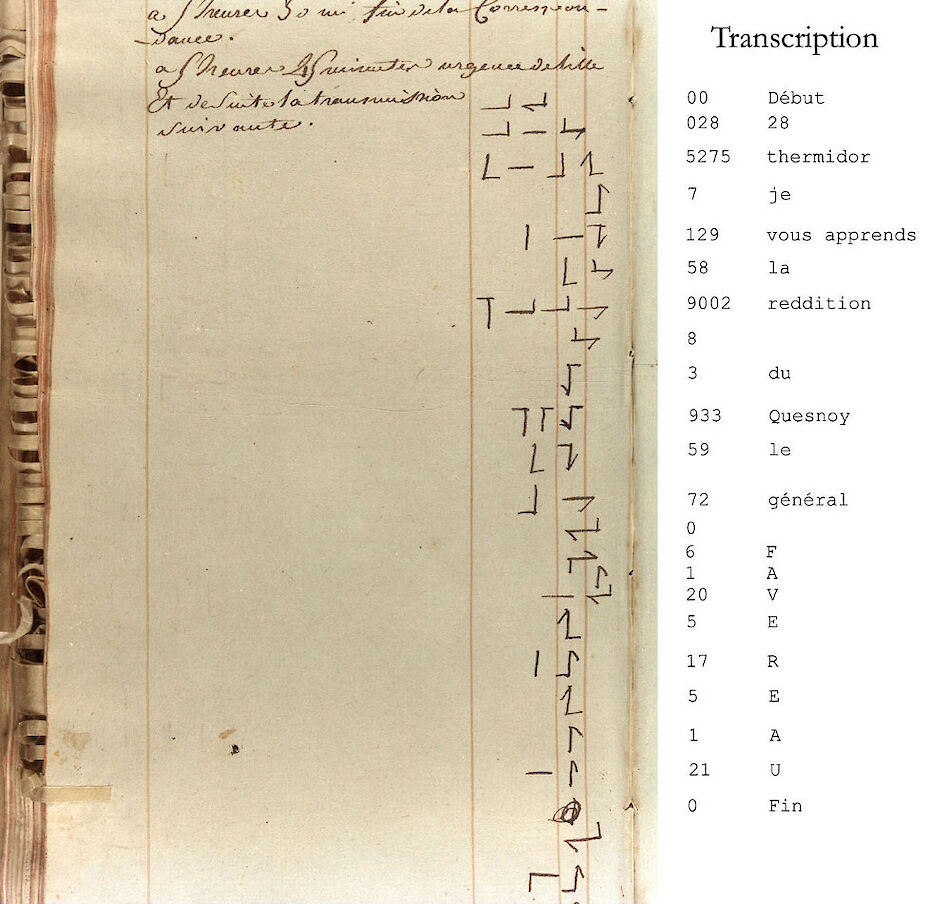 a 5 heures 30 mi fin de la Correspon-
dance.
a 5 heures 45 minutes urgence de lille
Et de Suite la transmission
Suivante.
Transcription
00 Début
028 28
5275 thermidor
7 je
129 vous apprends
58 la
9002 reddition
8
3 du
933 Quesnoy
59 le
72 général
0
6 F
1 A
20 V
5 E
17 R
5 E
1 A
21 U
0 Fin